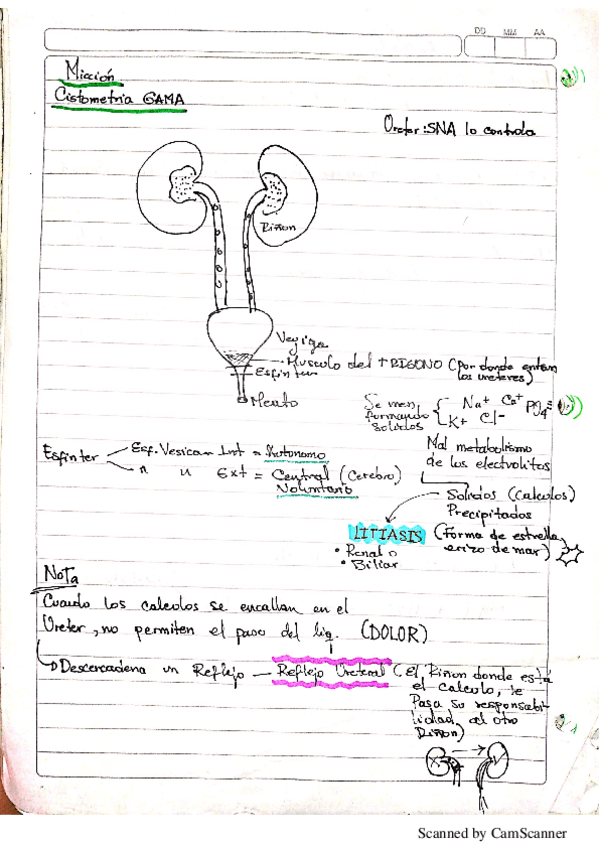 DD MM AA
Micción
Cistometria GAMA
Ureter: SNA lo controla
Riñon
Vejiga
Musculo del TRIGONO (por donde entran
los ureteres)
Esfinter
Meato
Se van
formando
solidos
Na+ Ca+ PO4≡
K+ Cl-
Mal metabolismo
de los electrolitos
Esfinter
Esf. Vesical Int = Autonomo
" " Ext = Central (Cerebro)
Voluntario
Solidos (Calculos)
Precipitados
LITIASIS (Forma de estrella,
erizo de mar)
• Renal o
• Biliar
Nota
Cuando los calculos se encallan en el
Ureter, no permiten el paso del liq. (DOLOR)
Descercadena un Reflejo — Reflejo Ureteral (El Riñon donde está
el calculo, le
Pasa su responsabi-
lidad, al otro
Riñon)
Scanned by CamScanner